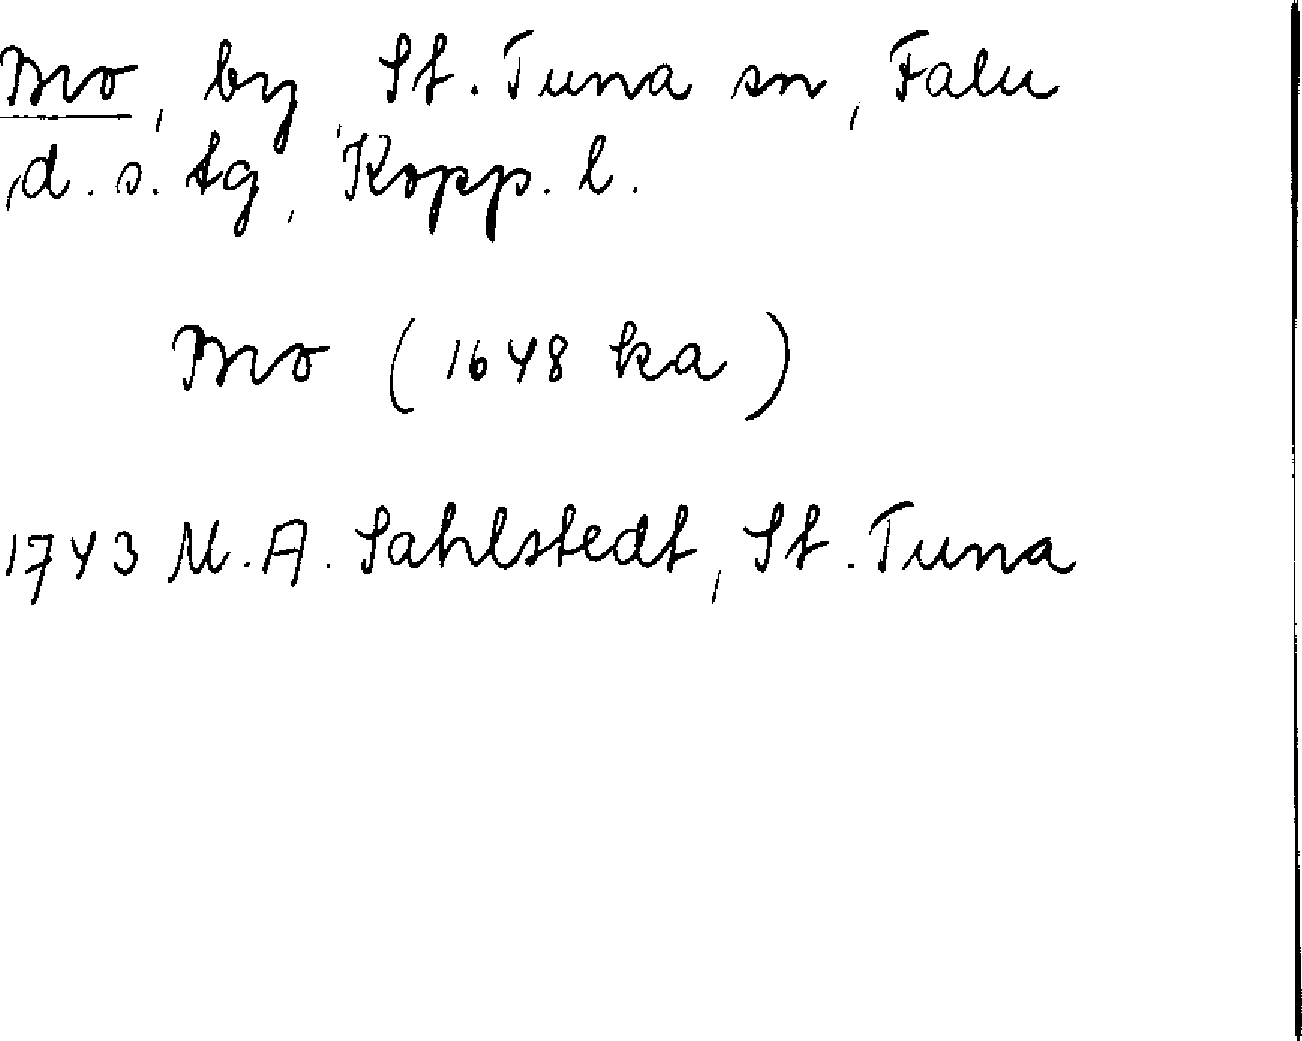 Bro, by, St. Tuna sn, Falu
d. s. tg, Kopp. l.
Bro (1648 ka)
1743 M. A. Sahlstedt, St. Tuna